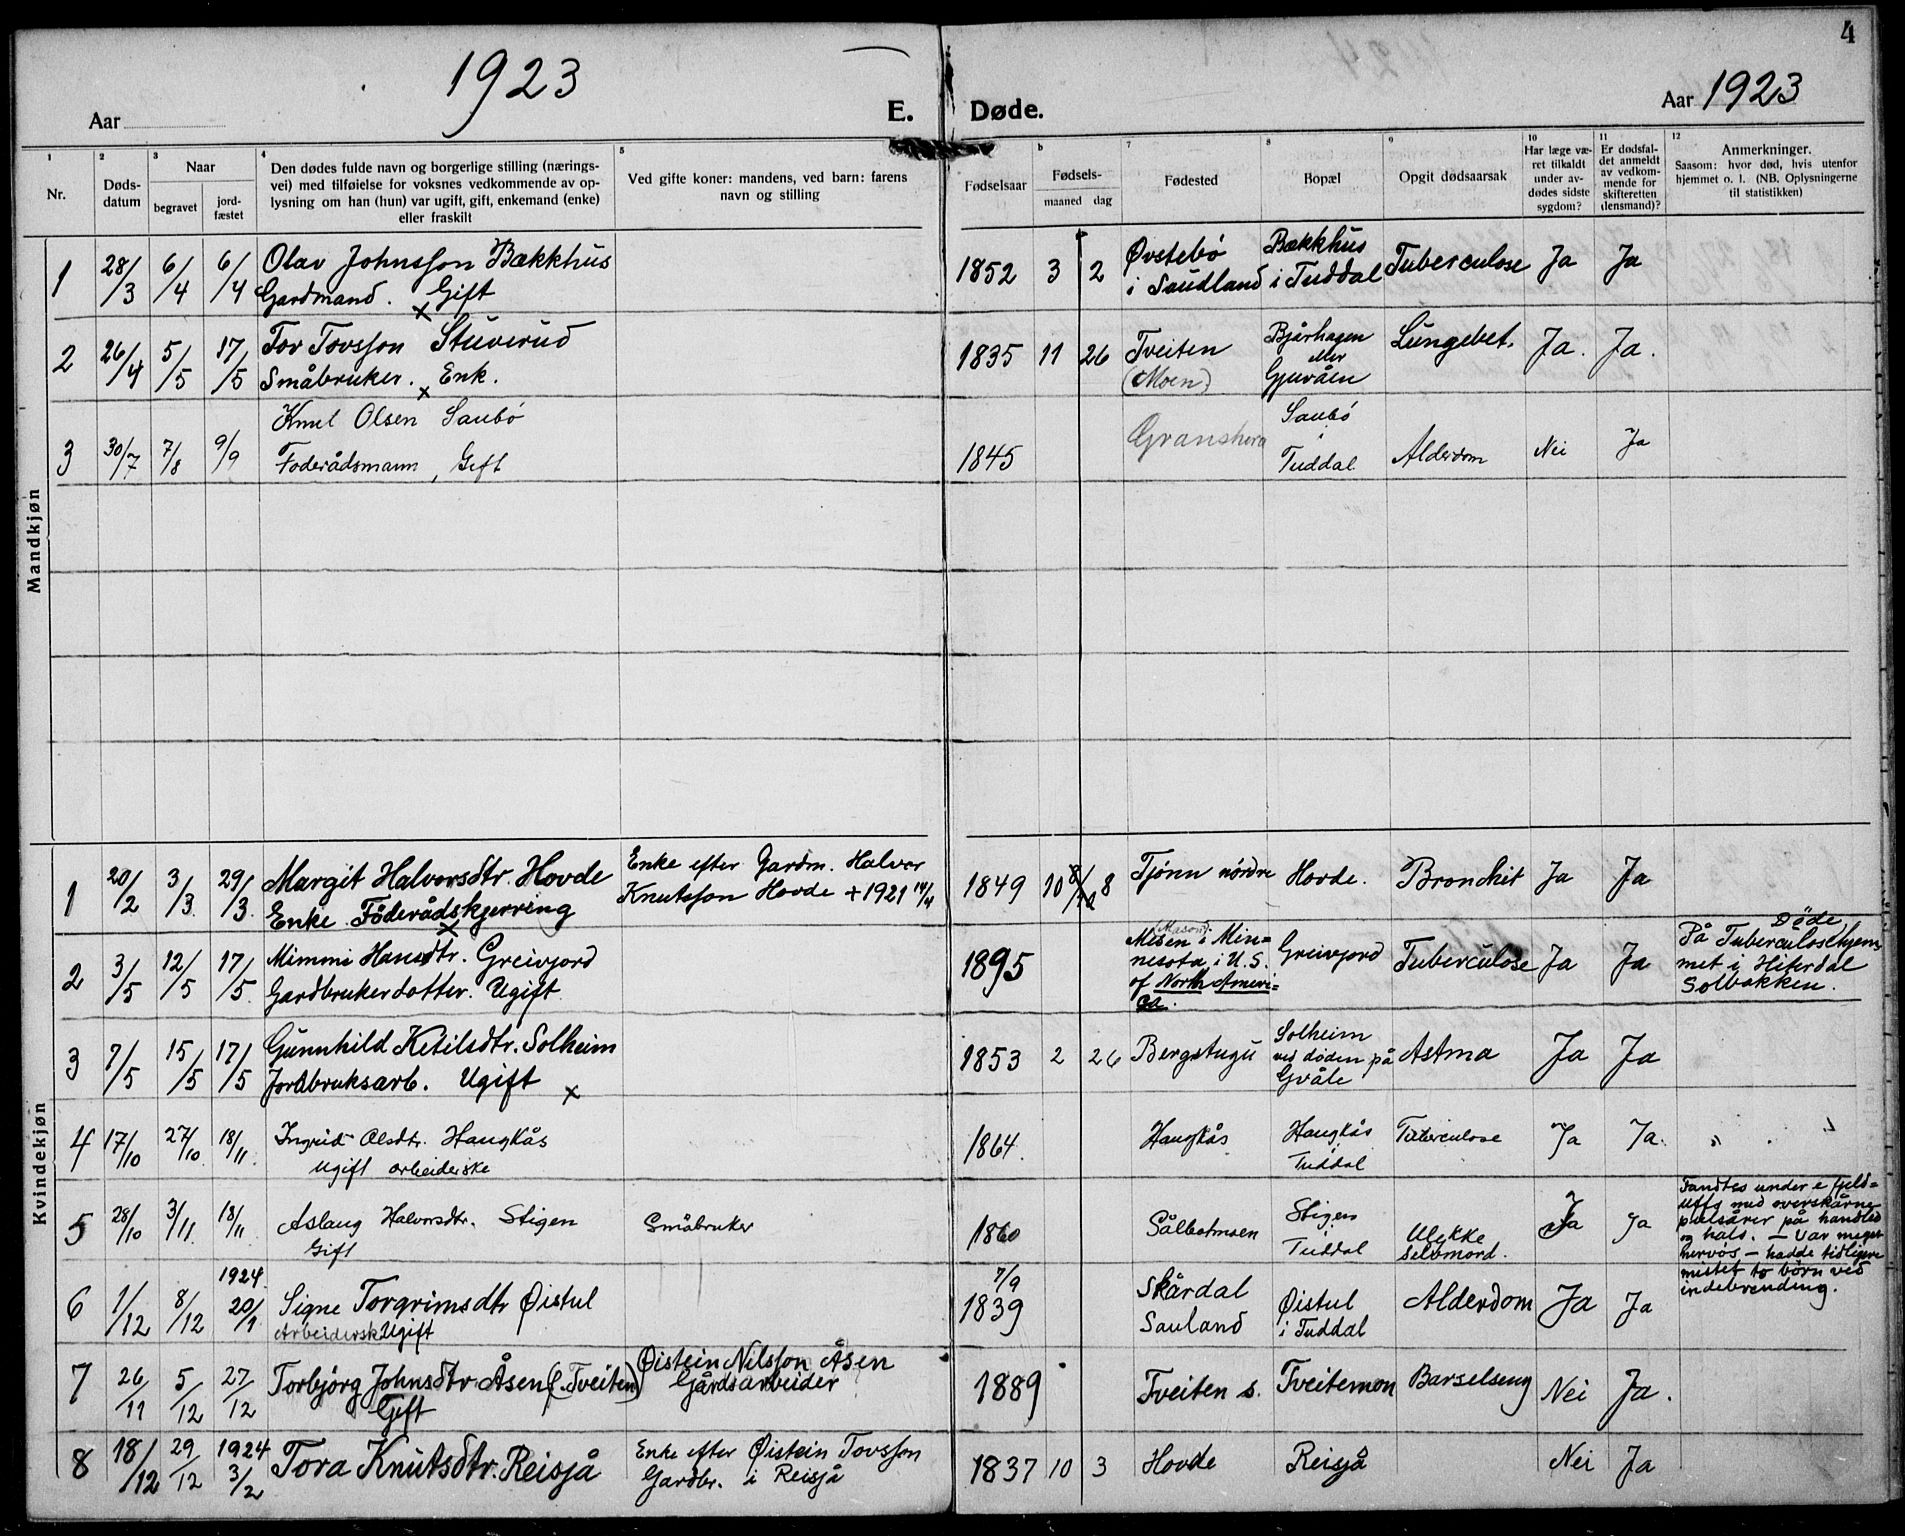 4
1923
1923
Aar
E. Døde.
Aar
1 2 3 4 5 6 7 8 9 10 11 12
Nr.
Døds-
datum
Naar
begravet
jord-
fæstet
Den dødes fulde navn og borgerlige stilling (nærings-
vei) med tilføielse for voksnes vedkommende av op-
lysning om han (hun) var ugift, gift, enkemand (enke)
eller fraskilt
Ved gifte koner: mandens, ved barn: farens
navn og stilling
Fødselsaar
Fødsels-
maaned dag
Fødested
Bopæl
Opgit dødsaarsak
Har læge væ-
ret tilkaldt
under av-
dødes sidste
sygdom?
Er dødsfal-
det anmeldt
av vedkom-
mende for
skifteretten
(lensmand)?
Anmerkninger.
Saasom: hvor død, hvis utenfor
hjemmet o. l. (NB. Oplysningerne
til statistikken)
Mandkjøn
1 28/3 6/4 6/4 Olav Johnsson Bækkhus
Gardmand. Gift
1852 3 2 Øvstebö
i Saudland
Bækkhus
i Tuddal
Tuberculose Ja Ja
2 26/4 5/5 17/5 Tov Tovsson Stuverud
Småbruker. Enk.
1835 11 26 Tveiten
(Moen)
Bjårhagen
eller
Gjuvåen
Lungebet. Ja. Ja.
3 30/7 7/8 9/9 Knut Olsen Saubö
Foderådsmann, Gift
1845 Granshera
Saubö
i
Tuddal
Alderdom Nei Ja
Kvindekjøn
1 20/2 3/3. 29/3. Margit Halvorsdtr. Hovde
Enke Föderådskjerring
Enke efter Gardm. Halvor
Knutsson Hovde + 1921 14/4
1849 10 8 Tjönn nördre Hovde. Bronchit Ja Ja
2 3/5 12/5 17/5. Mimmi Hansdtr. Greivjord
Gardbrukerdotter. Ugift
1895 (Mason)
Mesen i Min=
nesota i U.S.
of North Ameri=
ca.
Greivjord Tuberculose Ja Ja
Döde
På Tuberculosehjem
met i Hiterdal
Solbakken.
3 7/5 15/5 17/5 Gunnhild Ketilsdtr. Solheim
Jordbruksarb. Ugift
1853 2 26 Bergstugu
Solheim
ved döden på
Gvåle
Astma Ja Ja
4 17/10 27/10. 18/11. Ingrid Olsdtr. Haugkås
Ugift arbeiderske
1864. Haugkås
Haugkås
Tuddal
Tuberculose Ja Ja.
5 28/10 3/11. 18/11. Aslaug Halvorsdtr. Stigen
Gift
Småbruker
1860
Stigen
Tuddal
Ulykke
selvmord.
Ja Ja
Fandtes under e fjeld=
med overskårne
pulsårer på handled
og hals. – Var meget
nervös – hadde tidligere
mistet to börn ved
indebrending.
6 1/12 8/12 1924. 20/1 Signe Torgrimsdtr Øistul
Arbeidersk Ugift
7/9
1839
Skårdal
Sauland
Øistul
i Tuddal
Alderdom Ja Ja
7 26/11 5/12 27/12 Torbjörg Johnsdtr Åsen (f. Tveiten)
Gift
Øistein Nilsson Åsen
Gårdsarbeider
1889 Tveiten s. Tveitemon Barselseng Nei Ja.
8 18/12 29/12 1924 3/2 Tora Knutsdtr. Reisjå
Enke efter Øistein Tovsson
Gardbr. i Reisjå
1837 10 3 Hovde Reisjå Nei Ja